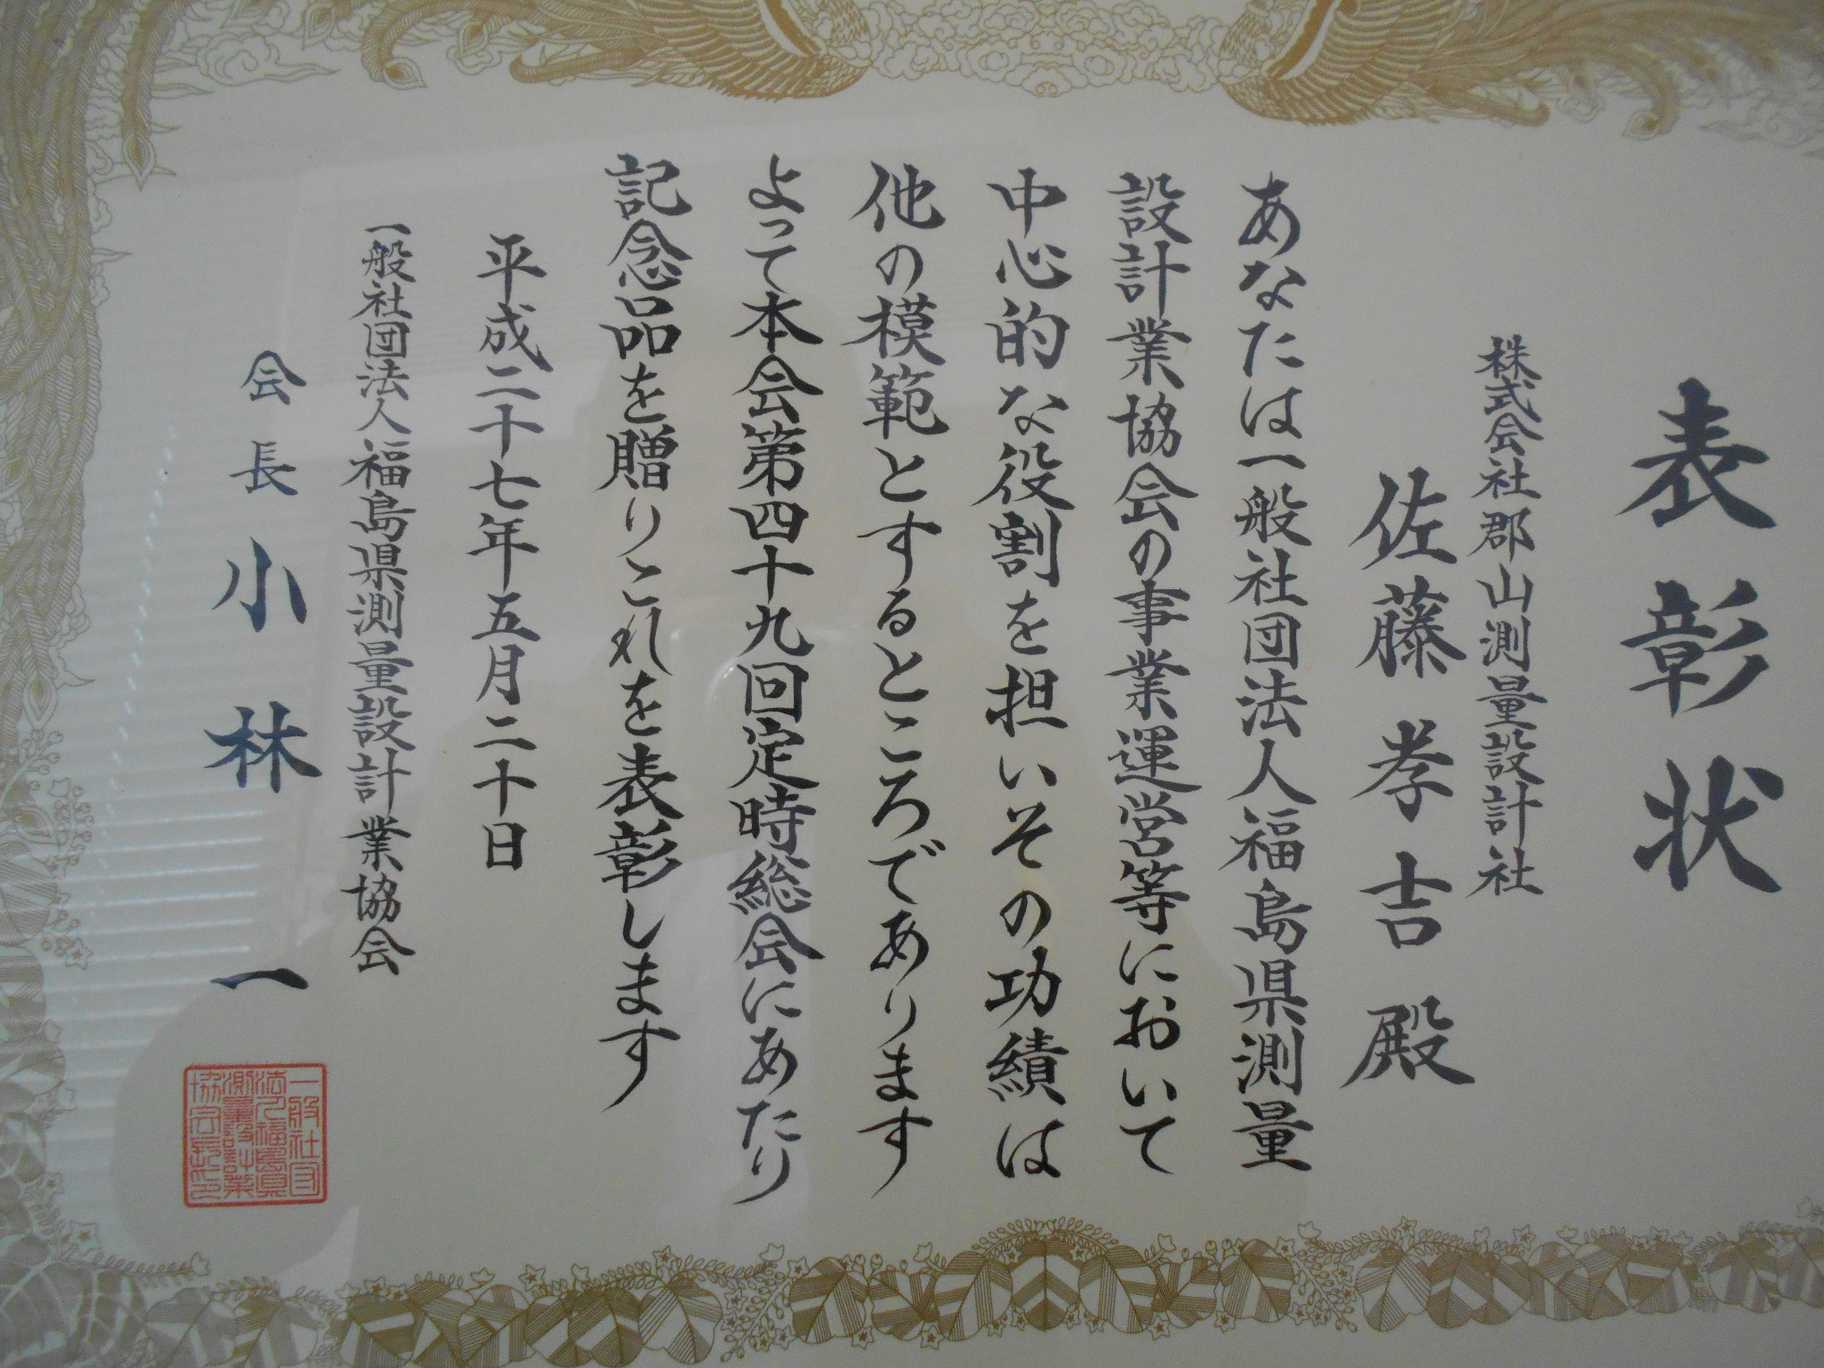 表彰状
株式会社郡山測量設計社
佐藤孝吉殿
あなたは一般社団法人福島県測量
設計業協会の事業運営等において
中心的な役割を担いその功績は
他の模範とするところであります
よって本会第四十九回定時総会にあたり
記念品を贈りこれを表彰します
平成二十七年五月二十日
一般社団法人福島県測量設計業協会
会長小林一
一般社団
法人福島県
測量設計業
協会長之印